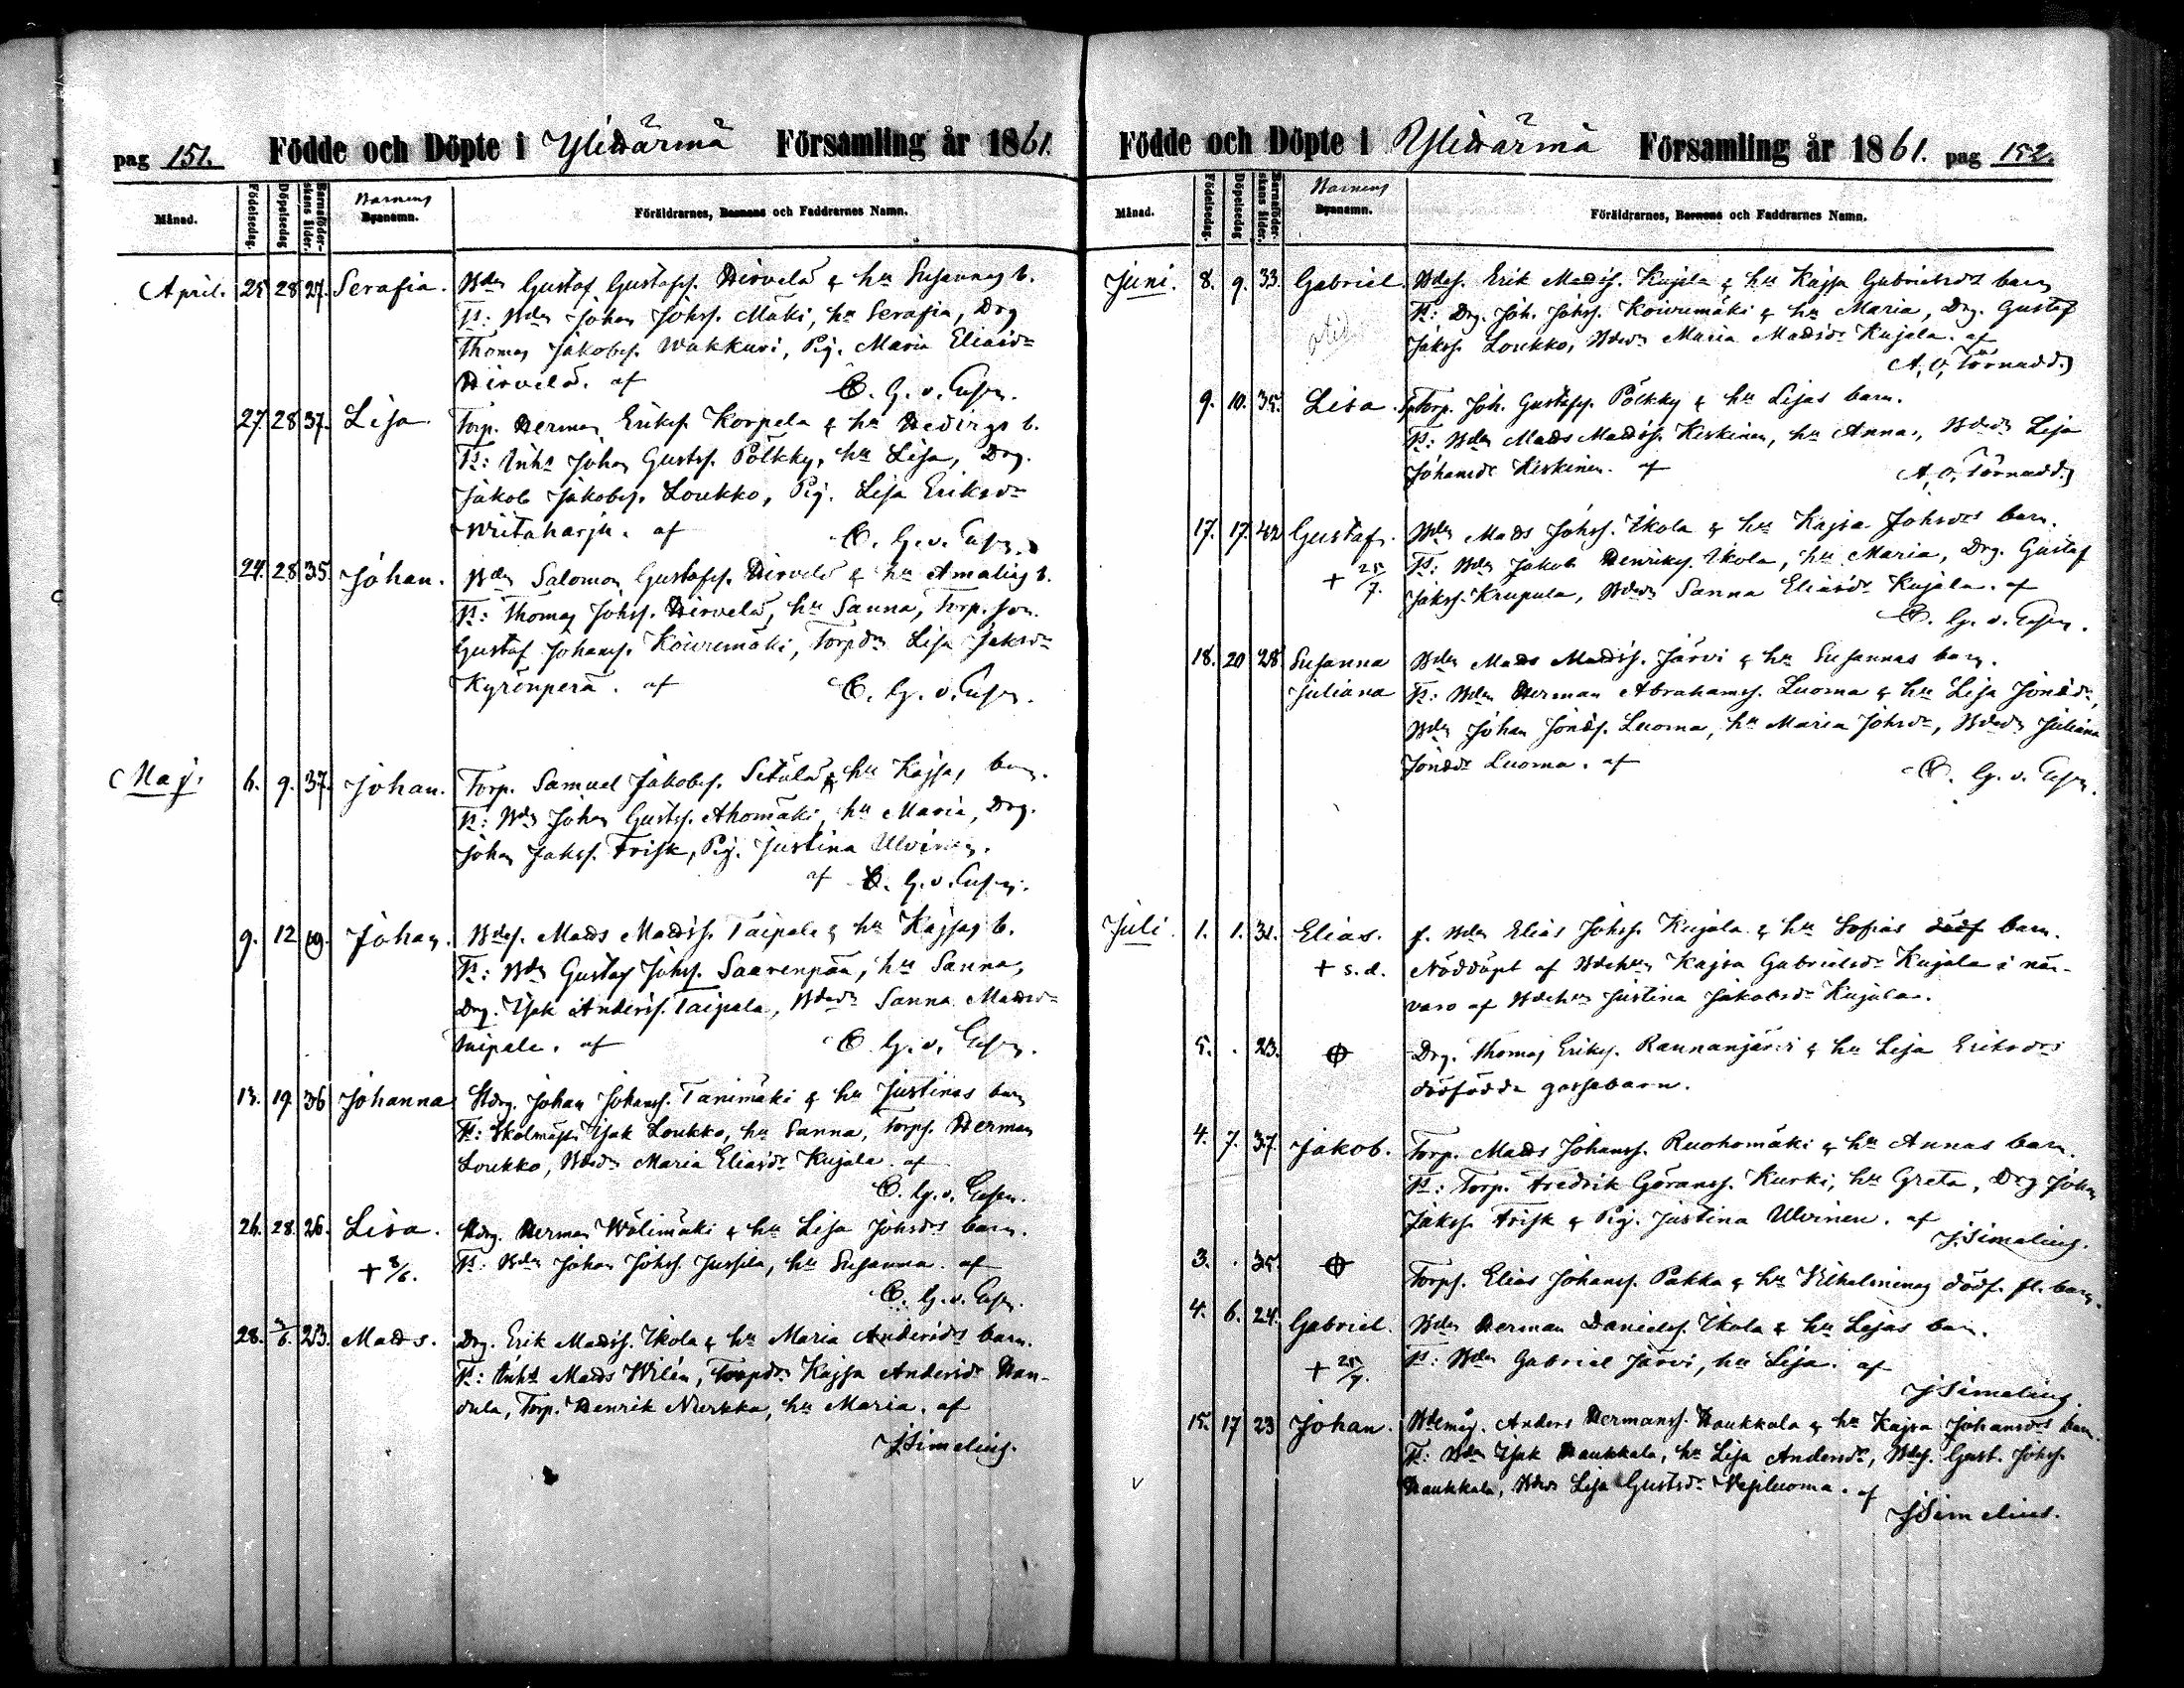 pag 151. Födde och Döpte i Ylihärmä Församling år 1861.
Månad. Födelsedag. Döpelsedag Barnaföder-skans ålder. Barnens Byanamn. Föräldrarnes, Barnens och Faddrarnes Namn.
April. 25 28 27. Serafia. Bdn Gustaf Gustafss. Hirvelä & hu Susannas b.
Ts: Bdn Johan Johss. Mäki, hu Serafia, Drg
Thomas Jakobss. Wakkuri, Pig. Maria Eliasdr
Hirvelä. af
27. 28 37. Lisa. Torp. Herman Erikss. Korpela & hu Hedvigs b.
Ts: Inhs Johan Gustss. Pölkky, hu Lisa, Drg.
Jakob Jakobss. Loukko, Pig. Lisa Eriksdr
Wiitaharju. af
24. 28 35. Johan. Bdn Salomon Gustafss. Hirvelä & hu Amalias b.
Ts: Thomas Johss. Hirvelä, hu Sanna, Torp. son
Gustaf Johanss. Koivumäki, Torpdr Lisa Jaksdr
Kyrönperä. af
Maj. 6. 9. 37. Johan. Torp. Samuel Jakobss. Setälä & hu Kajsas barn.
Ts: Bdn Johan Gustss. Ahomäki, hu Maria, Drg.
Johan Jakss. Frisk, Pig. Justina Ulvinen.
af
9. 12 Johan. Bdes. Mads Madss. Taipale & hu Kajsas b.
Ts: Bdn Gustaf Johss. Saarenpää, hu Sanna,
Drg. Isak Anderss. Taipale, Bdedr Sanna Madsdr
Taipale. af
13. 19. 36 Johanna Stdrg. Johan Johanss. Tanimäki & hu Justinas barn
Ts: Skolmäst. Isak Loukko, hu Sanna, Torps. Herman
Loukko, Bdedr Maria Eliasdr Kujala. af
26. 28. 26. Lisa. Stdrg. Herman Wälimäki & hu Lisa Johsdrs barn.
+ 8/6. Ts: Bdn Johan Johss. Jussila, hu Susanna. af
28. 2/6. 23. Mads. Drg. Erik Madss. Ikola & hu Maria Andersdrs barn.
Ts: Inhs Mads Wilén, Torpdr Kajsa Andersdr Han-
dula, Torp. Henrik Nurkka, hu Maria. af
J Simelius.
Födde och Döpte i Ylihärmä Församling år 1861. pag 152.
Månad. Födelsedag. Döpelsedag Barnaföder-skans ålder. Barnens Byanamn. Föräldrarnes, Barnens och Faddrarnes Namn.
Juni. 8. 9. 33. Gabriel. Bdes. Erik Madss. Kujala & hu Kajsa Gabrielsdrs barn
Ts: Drg. Joh. Johss. Koivumäki & hu Maria, Drg. Gustaf
Jakss. Loukko, Bdedr Maria Madsdr Kujala. af
A. O. Törnudd.
9. 10. 35. Lisa. Torp. Joh. Gustafss. Pölkky & hu Lisas barn.
Ts: Bdn Mads Madss. Keskinen, hu Anna, Bdedr Lisa
Johansdr Keskinen. af
A. O. Törnudd.
17. 17. 42 Gustaf. Bdn Mads Johss. Ikola & hu Kajsa Johsdrs barn.
+ 25/7. Ts: Bdn Jakob Henrikss. Ikola, hu Maria, Drg. Gustaf
Jakss. Krupula, Bdedr Sanna Eliasdr Kujala. af
18. 20 28 Susanna Bdn Mads Madss. Järvi & hu Susannas barn.
Juliana Ts: Bdn Herman Abrahamss. Luoma & hu Lisa Jonædr,
Bdn Johan Jonæs. Luoma, hu Maria Johsdr, Bdedr Juliana
Jonædr Luoma. af
Juli. 1. 1. 31. Elias. f. Bdn Elias Johss. Kujala & hu Sofias dödf barn.
+ s. d. Nöddöpt af Bdehu Kajsa Gabrielsdr Kujala i när-
varo af Bdehu Justina Jakobsdr Kujala.
5. . 23. Drg. Thomas Erikss. Rannanjärvi & hu Lisa Eriksdrs
dödfödda gossabarn.
4. 7. 37. Jakob. Torp. Mads Johanss. Ruohomäki & hu Annas barn.
Ts: Torp. Fredrik Göranss. Kurki, hu Greta, Drg Johan
Jakss. Frisk & Pig. Justina Ulvinen. af
J. Simelius.
3. . 35. Torps. Elias Johanss. Pakka & hu Vilhelminas dödf. fl. barn.
4. 6. 24. Gabriel. Bdn Herman Danielss. Ikola & hu Lisas barn.
+ 25/7. Ts: Bdn Gabriel Järvi, hu Lisa. af
J Simelius
15. 17 23 Johan. Bdemåg. Anders Hermanss. Haukkala & hu Kajsa Johansdrs barn.
Ts: Bdn Isak Haukkala, hu Lisa Andersdr, Bdes. Gust. Johss.
Haukkala, Bdedr Lisa Gustsdr Vesiluoma. af
J Simelius.